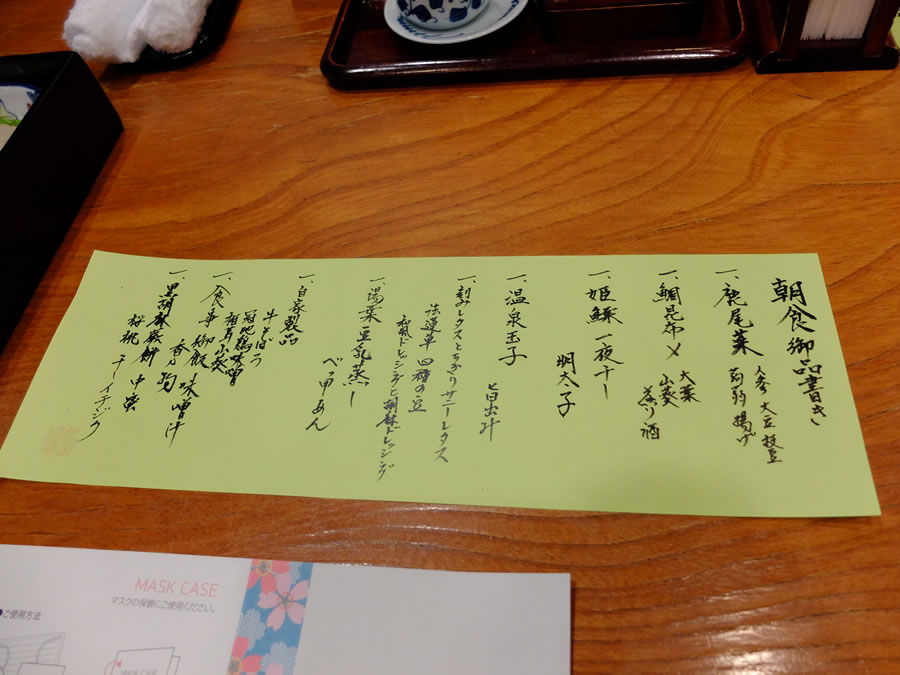 朝食御品書き
一、鹿尾菜
人参 大豆 枝豆
蒟蒻 揚げ
一、鯛昆布〆
大葉
山葵
煎り酒
一、姫鰈一夜干し
明太子
一、温泉玉子
旨出汁
一、刻みレタスとちぎりサニーレタス
法蓮草 四種の豆
和風ドレッシングと胡麻ドレッシング
一、湯葉豆乳蒸し
べっ甲あん
一、自家製品
牛そぼろ
地鶏味噌
一、食事 御飯 味噌汁
香の物
一、黒胡麻蕨餅
桜桃
MASK CASE
マスクの保管にご使用ください。
●ご使用方法
MASK CASE